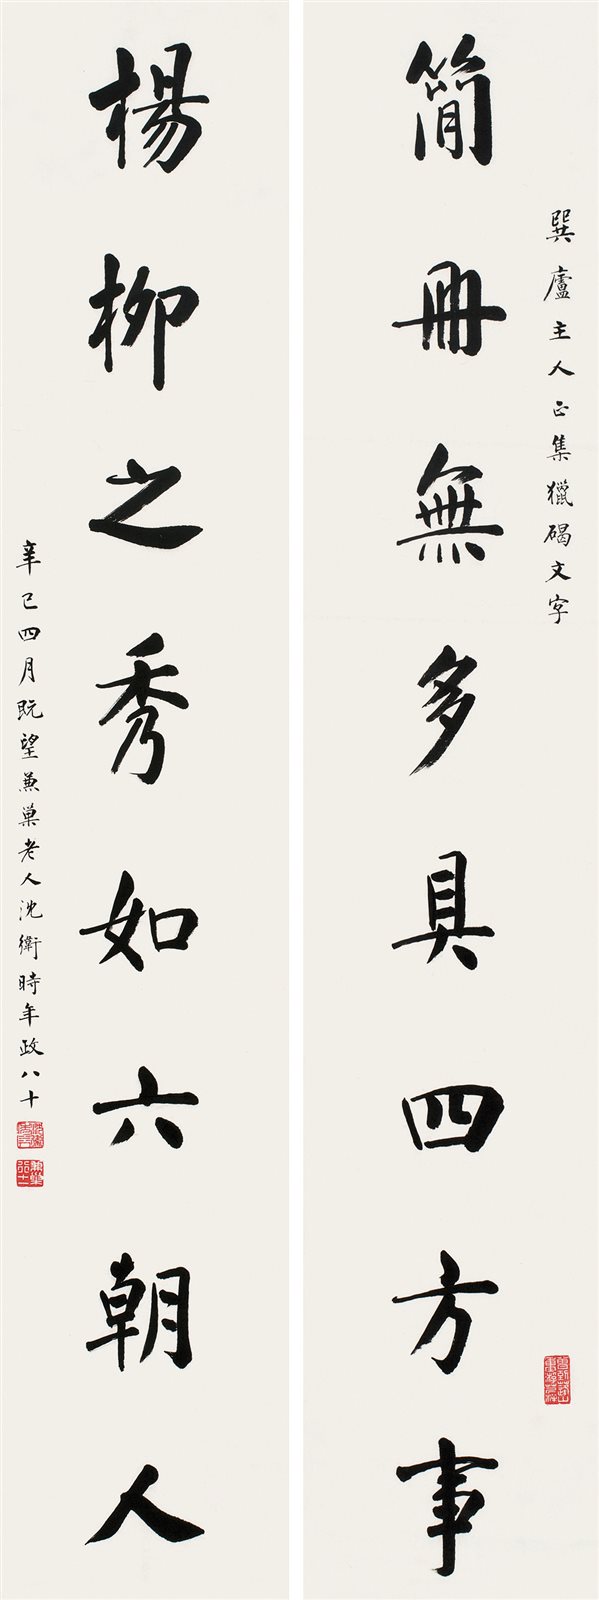 巽廬主人正集獵碣文字
簡冊無多具四方事
楊柳之秀如六朝人
辛巳四月既望兼巢老人沈衛時年政八十